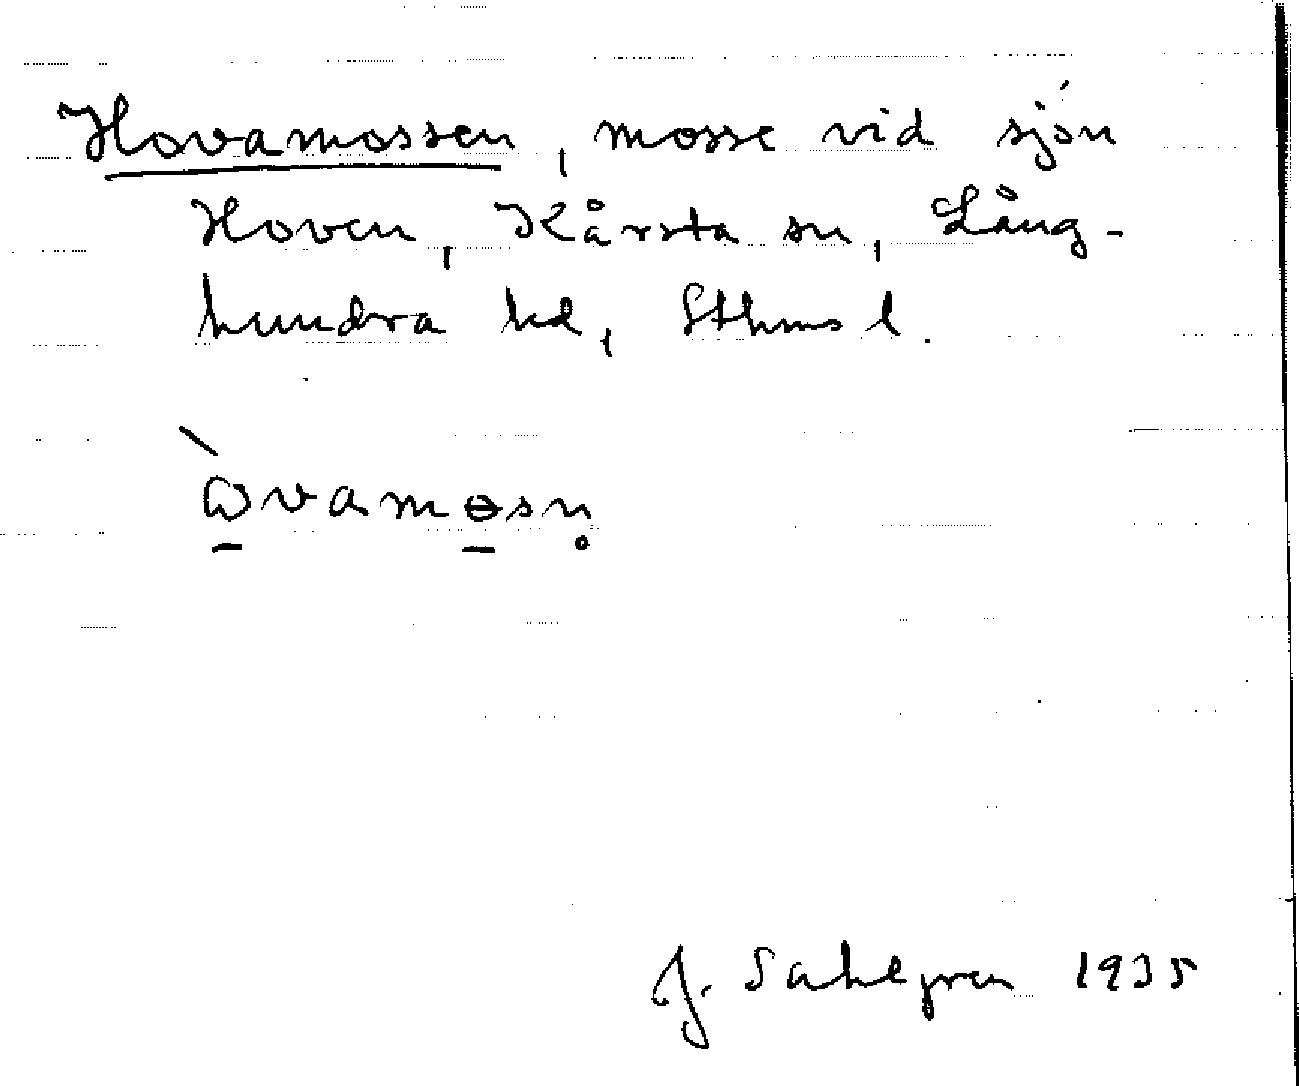 Hovamossen, mosse vid sjön
Hoven, Kårsta sn, Lång-
hundra hd, Sthms l.
J. Sahlgren 1935